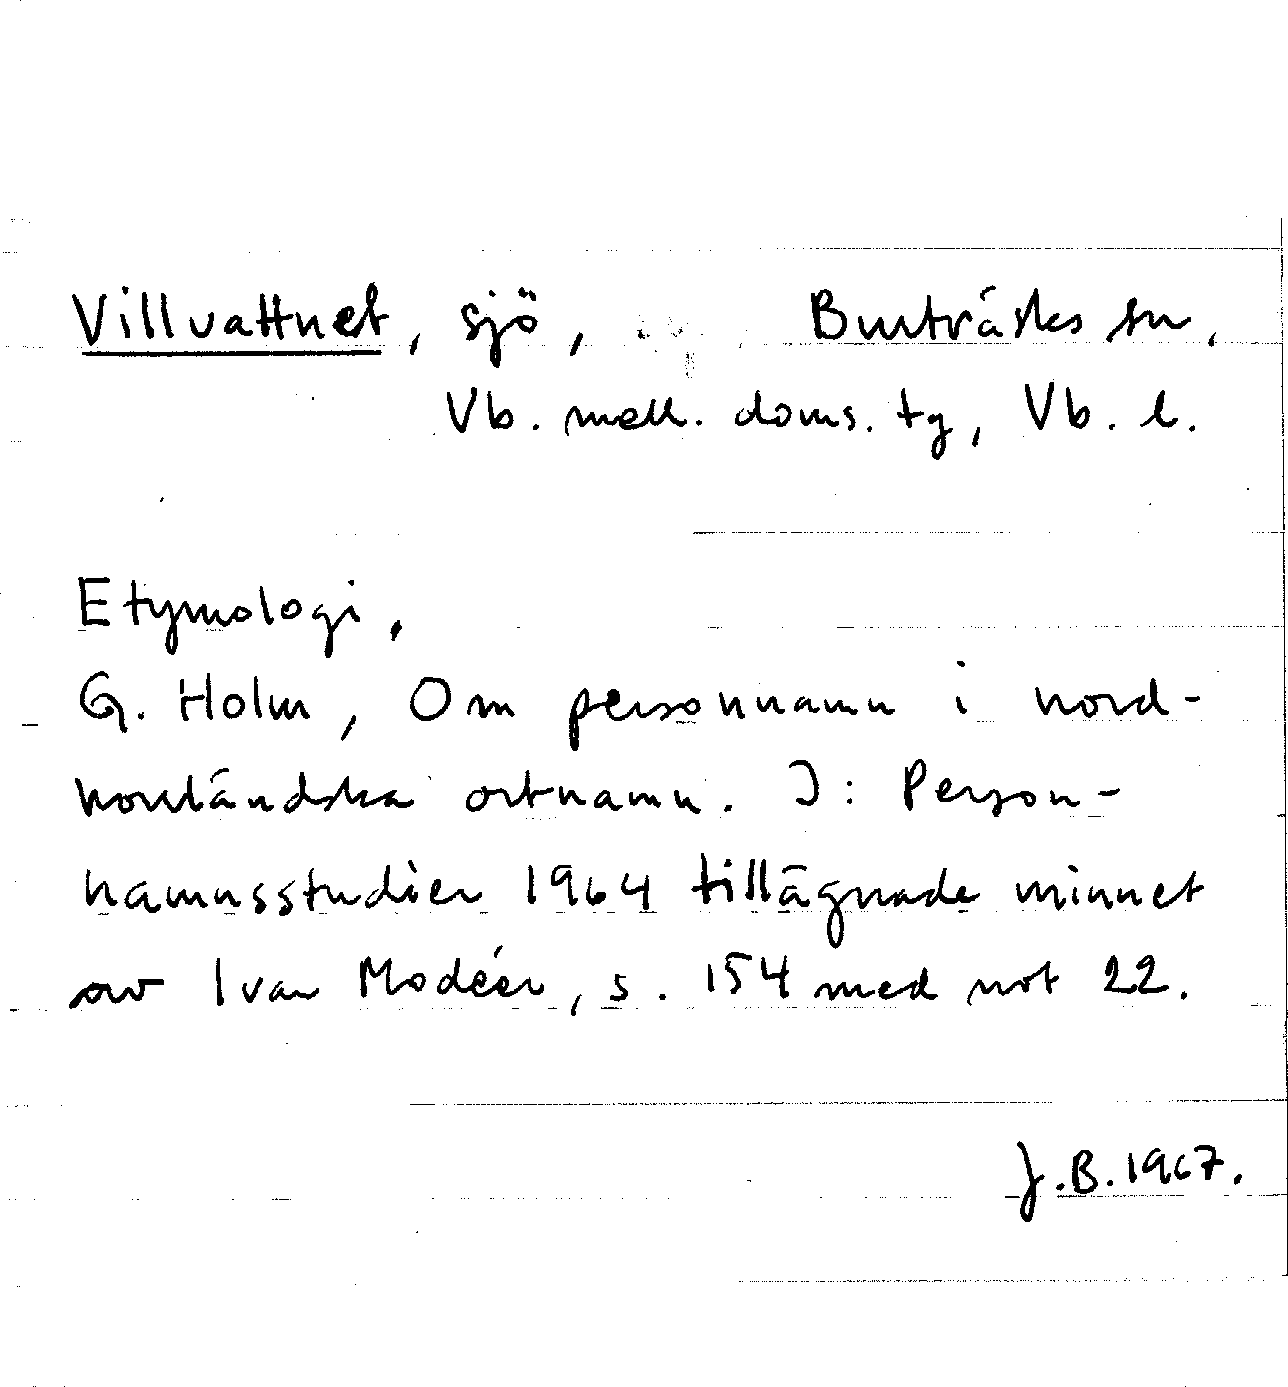 Villvattnet, sjö, Burträsks sn,
Vb. mell. doms. tg, Vb. l.
Etymologi,
G. Holm, Om personnamn i nord-
norrländska ortnamn. I: Person-
namnsstudier 1964 tillägnade minnet
av Ivar Modéer, s. 154 med not 22.
J.B. 1967.